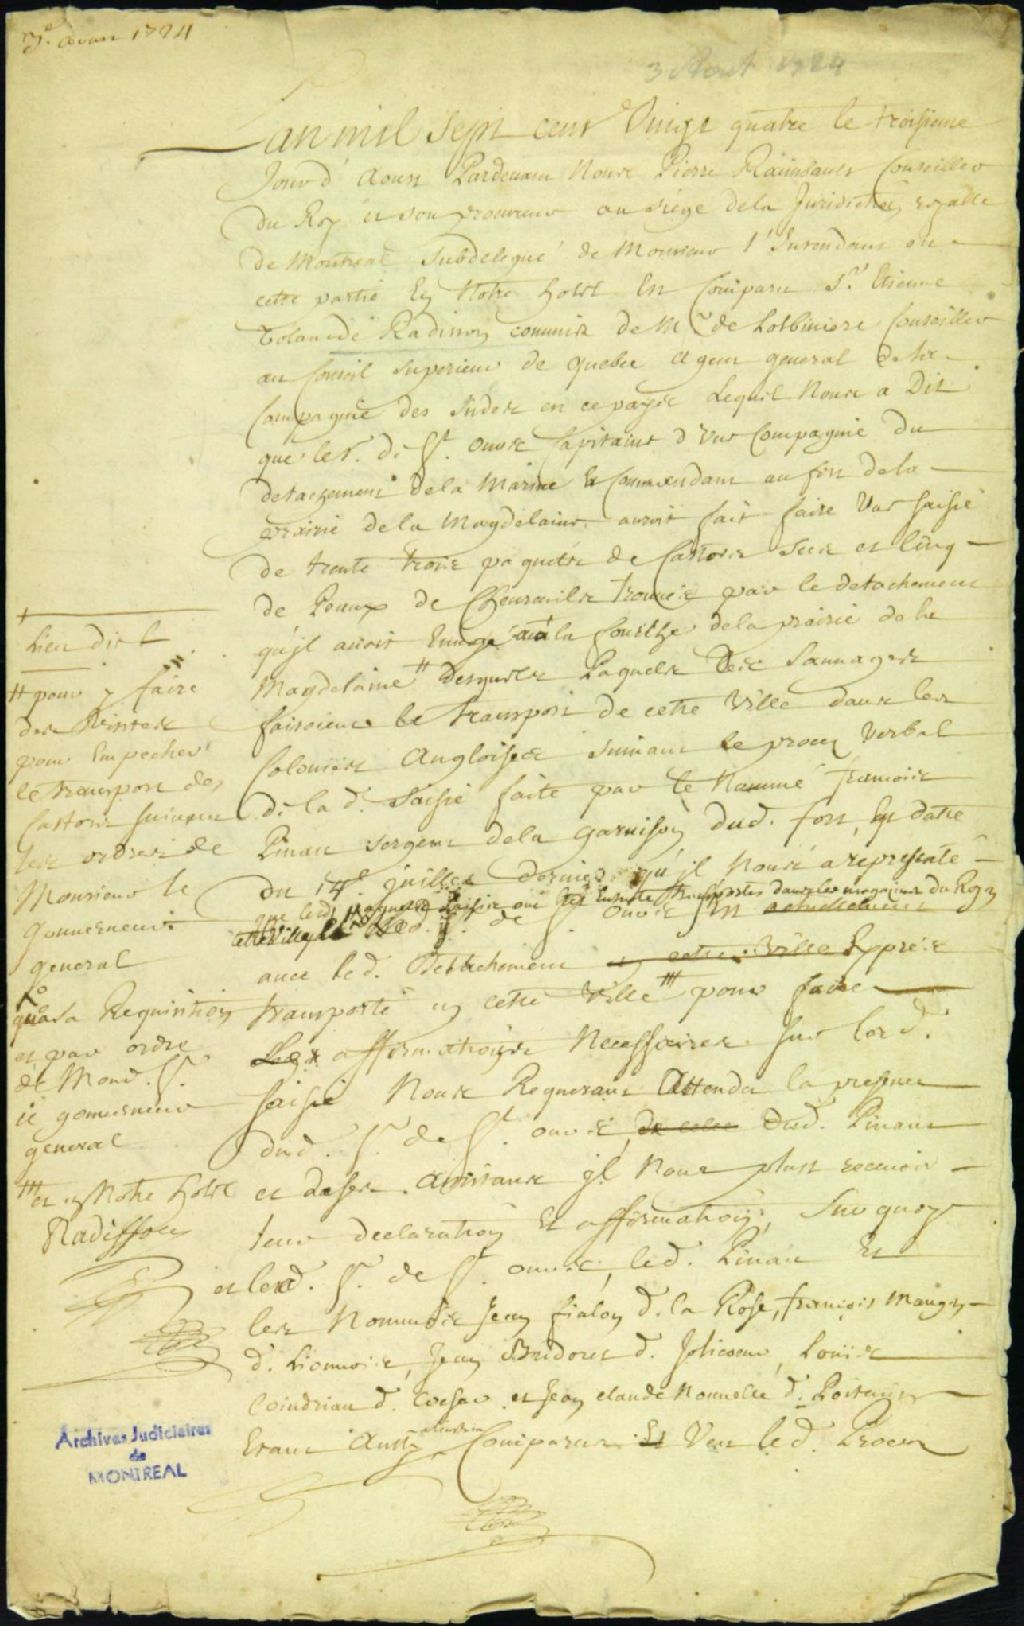 3e. aoust 1724
3 Aout 1724
Lan mil sept cent Vingt quatre le troisieme
Jour d'Aoust Pardevant Nous Pierre Raimbault Conseiller
du Roy et son procureur au siege de la Juridiction royalle
de Montreal Subdelegué de Monsieur l'Intendant en
cette partie En Notre hotel Est Comparu Sr. Etienne
Volant de Radisson commis de Mr. de Lotbiniere Conseiller
au Conseil Superieur de quebec agent general de la
Compagnie des Indes en ce payis Lequel Nous a Dit
que le Sr. de St. Ours Capitaine d'Une Compagnie du
detachement de la Marine Et Commendant au fort de la
prairie de la Magdelaine auroit fait faire Une saisie
de trente trois paquets de Castors secs et Cinq
de Peaux de Chevreuils trouvés par le detachement
qu'jl avoit Envoyé a la fourche de la prairie de la
Magdelaine # desquels Paquets Des Sauvages
faisoient le transport de cette Ville dans les
Colonies Angloises suivant le procez Verbal
de lad. Saisie faite par le Nommé francois
Pinau sergent de la garnison dud. fort, En datte
du 14e. juillet dernier qu'jl Nous a representé
que lesd. paquets saisis ont été Ensuite transportés dans les magazins du Roy en
cette Ville led. Sr. de St. Ours
avec led. Detachement en cette Ville Expres
transporté en cette Ville ''' pour faire
Les affirmations Necessaires sur lad.
saisie Nous Requerant Attendu la presence
dud. Sr. de St. Ours de celle Dud. Pinau
et desd. assistans jl Nous plust recevoir
leur declaration Et affirmation, Sur quoy
et led. Sr. de St. Ours, led. Pinau Et
les Nommés Jean fialon d. la Rose, francois Maugin
d. Lionnois, Jean Bridoret d. Jolicoeur, Louis
Coindriau d. et Jean claude Nouvelle d. Poitevin
Etant Aussy Comparus Et Veu led. Procez
Lieu dit
# pour y faire
des Visites
pour Empecher
le transport des
Castors suivant
les ordres de
Monsieur le
gouverneur
general
qu'a sa Requisition
et par ordre
de Mond. Sr.
le gouverneur
general
''' et en Notre hotel
Radisson
Archives Judiciaires
de
MONTREAL